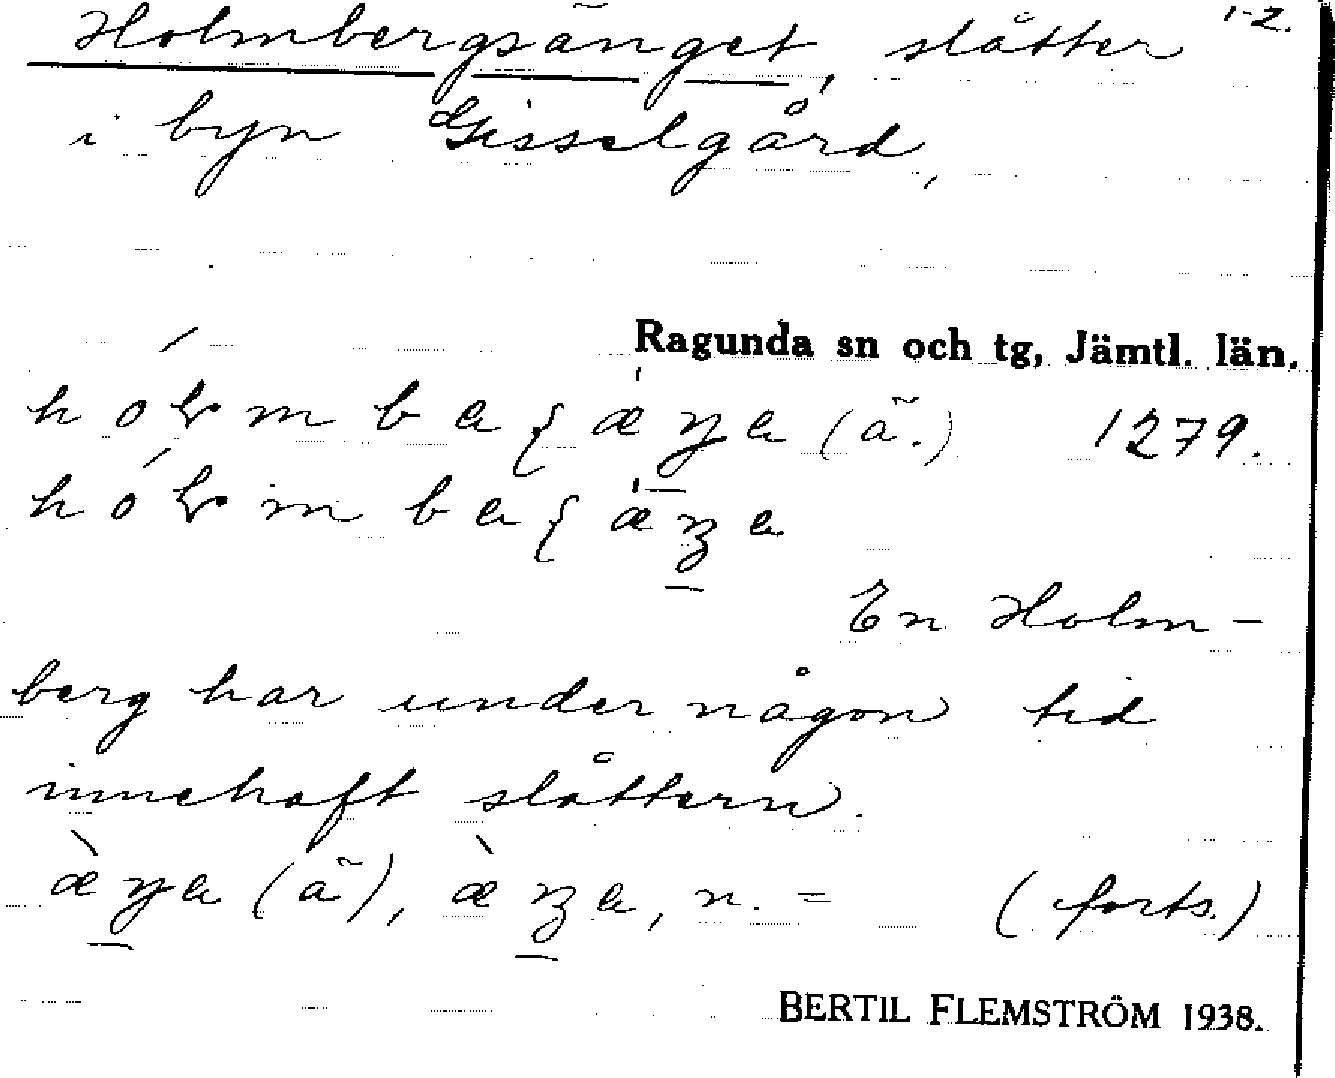 Holmbergsänget, slåtter 1-2.
i byn Gisselgård,
Ragunda sn och tg, Jämtl. län.
(ä.) 1279.
En Holm-
berg har under någon tid
innehaft slåttern.
(ä), n. = (forts.)
BERTIL FLEMSTRÖM 1938.